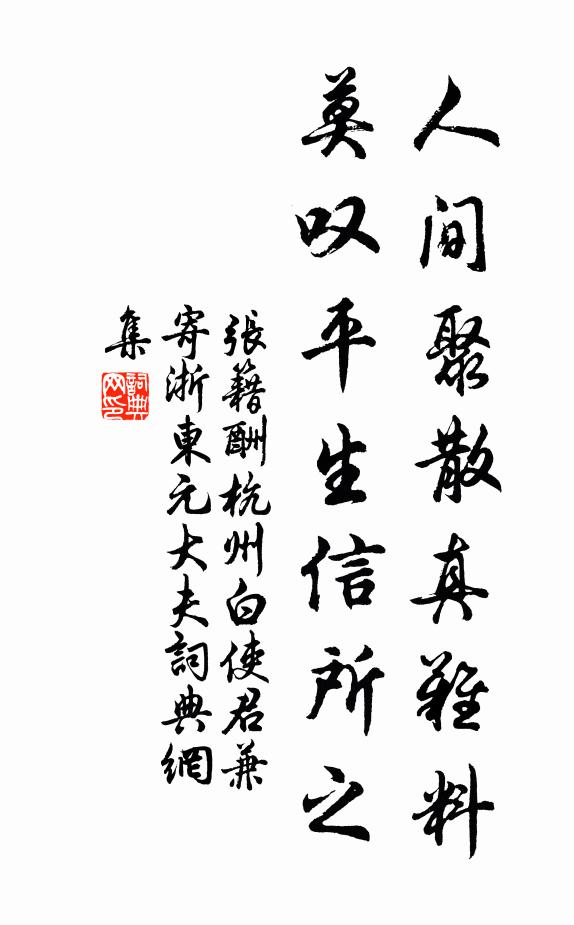 人间聚散真难料
莫叹平生信所之
張籍酬杭州白使君兼
寄浙東元大夫詞典網
集
詞典
网印